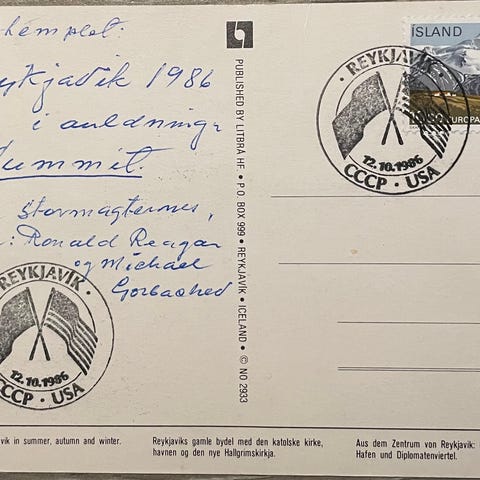 Reykjavik 1986
i anledning
Summit.
stormagternes,
: Ronald Reagan
og Michael
Gorbached
PUBLISHED BY LITBRÁ HF. • P.O. BOX 999 • REYKJAVÍK • ICELAND • © NO 2933
ÍSLAND
EUROPA
REYKJAVÍK
12.10.1986
CCCP · USA
REYKJAVÍK
12.10.1986
CCCP · USA
vik in summer, autumn and winter.
Reykjaviks gamle bydel med den katolske kirke,
havnen og den nye Hallgrimskirkja.
Aus dem Zentrum von Reykjavik:
Hafen und Diplomatenviertel.